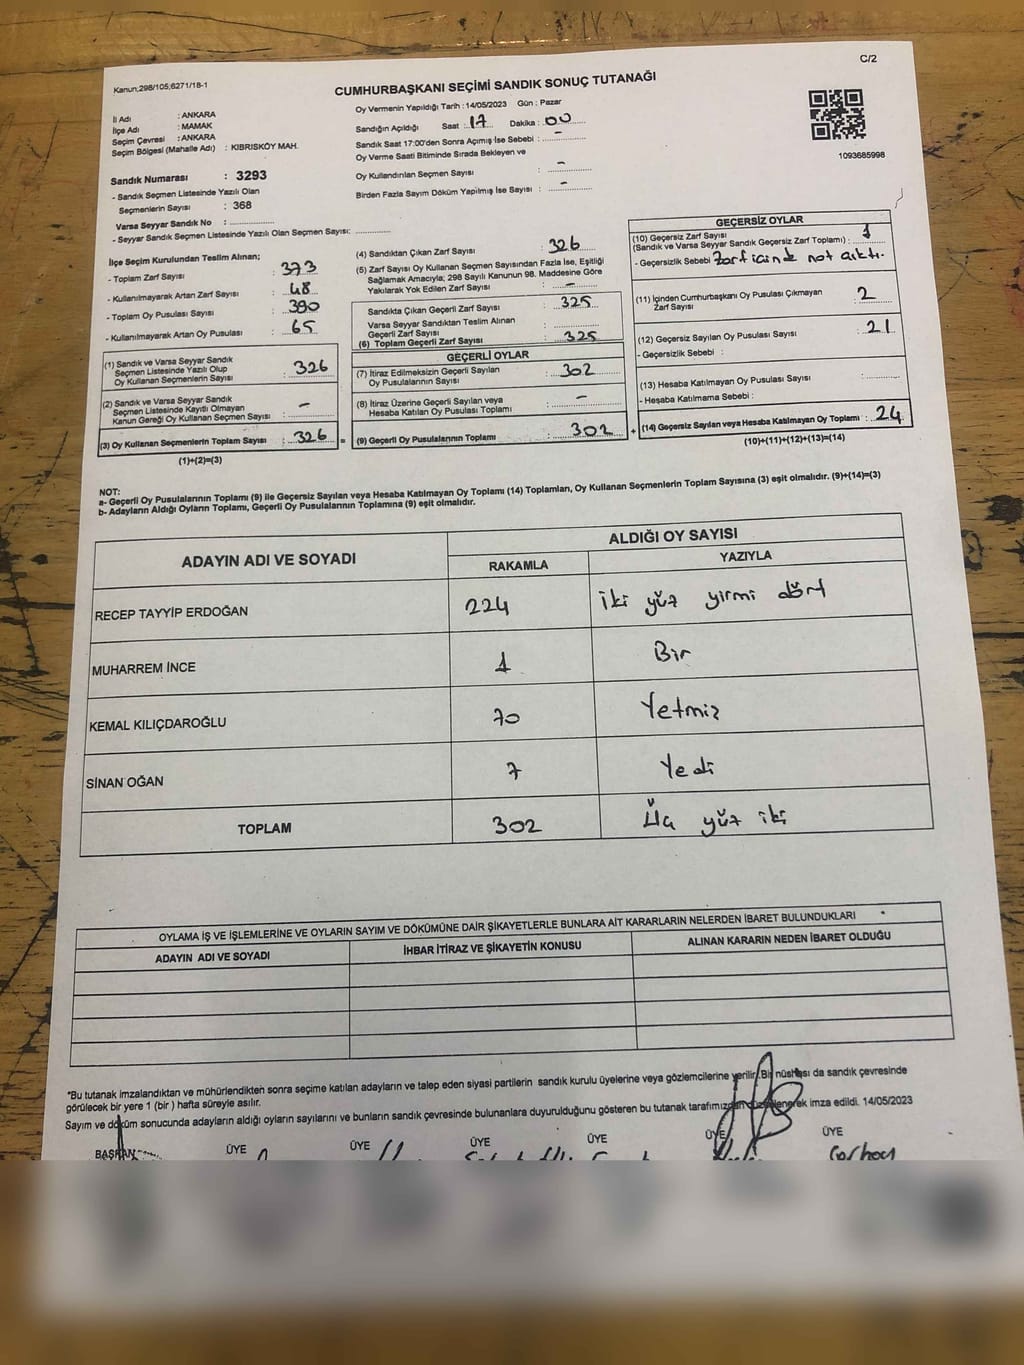 C/2
Kanun;298/105,6271/18-1
CUMHURBAŞKANI SEÇİMİ SANDIK SONUÇ TUTANAĞI
İl Adı : ANKARA
İlçe Adı : MAMAK
Seçim Çevresi : ANKARA
Seçim Bölgesi (Mahalle Adı) : KIBRISKÖY MAH.
Sandık Numarası : 3293
- Sandık Seçmen Listesinde Yazılı Olan
Seçmenlerin Sayısı : 368
Varsa Seyyar Sandık No :
- Seyyar Sandık Seçmen Listesinde Yazılı Olan Seçmen Sayısı:
Oy Vermenin Yapıldığı Tarih : 14/05/2023 Gün : Pazar
Sandığın Açıldığı Saat : 17 Dakika : 00
Sandık Saat 17:00'den Sonra Açımış İse Sebebi : -
Oy Verme Saati Bitiminde Sırada Bekleyen ve
Oy Kullandırılan Seçmen Sayısı : -
Birden Fazla Sayım Döküm Yapılmış İse Sayısı : -
1093685998
İlçe Seçim Kurulundan Teslim Alınan;
- Toplam Zarf Sayısı : 373
- Kullanılmayarak Artan Zarf Sayısı : 48
- Toplam Oy Pusulası Sayısı : 390
- Kullanılmayarak Artan Oy Pusulası : 65
(1) Sandık ve Varsa Seyyar Sandık
Seçmen Listesinde Yazılı Olup
Oy Kullanan Seçmenlerin Sayısı : 326
(2) Sandık ve Varsa Seyyar Sandık
Seçmen Listesinde Kayıtlı Olmayan
Kanun Gereği Oy Kullanan Seçmen Sayısı : -
(3) Oy Kullanan Seçmenlerin Toplam Sayısı : 326 =
(1)+(2)=(3)
(4) Sandıktan Çıkan Zarf Sayısı : 326
(5) Zarf Sayısı Oy Kullanan Seçmen Sayısından Fazla İse, Eşitliği
Sağlamak Amacıyla; 298 Sayılı Kanunun 98. Maddesine Göre
Yakılarak Yok Edilen Zarf Sayısı : -
Sandıkta Çıkan Geçerli Zarf Sayısı : 325
Varsa Seyyar Sandıktan Teslim Alınan
Geçerli Zarf Sayısı :
(6) Toplam Geçerli Zarf Sayısı : 325
GEÇERLİ OYLAR
(7) İtiraz Edilmeksizin Geçerli Sayılan
Oy Pusulalarının Sayısı : 302
(8) İtiraz Üzerine Geçerli Sayılan veya
Hesaba Katılan Oy Pusulası Toplamı : -
(9) Geçerli Oy Pusulalarının Toplamı : 302 +
GEÇERSİZ OYLAR
(10) Geçersiz Zarf Sayısı
(Sandık ve Varsa Seyyar Sandık Geçersiz Zarf Toplamı) : 1
- Geçersizlik Sebebi : Zarf içinde not çıktı.
(11) İçinden Cumhurbaşkanı Oy Pusulası Çıkmayan
Zarf Sayısı : 2
(12) Geçersiz Sayılan Oy Pusulası Sayısı : 21
- Geçersizlik Sebebi :
(13) Hesaba Katılmayan Oy Pusulası Sayısı :
- Hesaba Katılmama Sebebi :
(14) Geçersiz Sayılan veya Hesaba Katılmayan Oy Toplamı : 24
(10)+(11)+(12)+(13)=(14)
NOT:
a- Geçerli Oy Pusulalarının Toplamı (9) ile Geçersiz Sayılan veya Hesaba Katılmayan Oy Toplamı (14) Toplamları, Oy Kullanan Seçmenlerin Toplam Sayısına (3) eşit olmalıdır. (9)+(14)=(3)
b- Adayların Aldığı Oyların Toplamı, Geçerli Oy Pusulalarının Toplamına (9) eşit olmalıdır.
ADAYIN ADI VE SOYADI
ALDIĞI OY SAYISI
RAKAMLA YAZIYLA
RECEP TAYYİP ERDOĞAN 224 iki yüz yirmi dört
MUHARREM İNCE 1 Bir
KEMAL KILIÇDAROĞLU 70 Yetmiş
SİNAN OĞAN 7 Yedi
TOPLAM 302 Üç yüz iki
OYLAMA İŞ VE İŞLEMLERİNE VE OYLARIN SAYIM VE DÖKÜMÜNE DAİR ŞİKAYETLERLE BUNLARA AİT KARARLARIN NELERDEN İBARET BULUNDUKLARI
ADAYIN ADI VE SOYADI İHBAR İTİRAZ VE ŞİKAYETİN KONUSU ALINAN KARARIN NEDEN İBARET OLDUĞU
*Bu tutanak imzalandıktan ve mühürlendikten sonra seçime katılan adayların ve talep eden siyasi partilerin sandık kurulu üyelerine veya gözlemcilerine verilir. Bir nüshası da sandık çevresinde
görülecek bir yere 1 (bir ) hafta süreyle asılır.
Sayım ve döküm sonucunda adayların aldığı oyların sayılarını ve bunların sandık çevresinde bulunanlara duyurulduğunu gösteren bu tutanak tarafımızdan düzenlenerek imza edildi. 14/05/2023
BAŞKAN ÜYE ÜYE ÜYE ÜYE ÜYE ÜYE